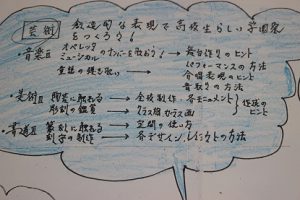 芸術
創造的な表現で高校生らしい学園祭
をつくろう!
・音楽Ⅱ オペレッタ
ミュージカル のナンバーを歌おう! → 舞台作りのヒント
童話の魂を歌い → パフォーマンスの方法
合唱表現のヒント
音取りの方法
・美術Ⅱ 陶芸に触れる → 全校制作・各モニュメント
彫刻の鑑賞 → クラス旗・ガラス画
作成のヒント
・書道Ⅱ 篆刻に触れる → 空間の使い方
刻字の制作 → 各デザイン、レイアウトの方法